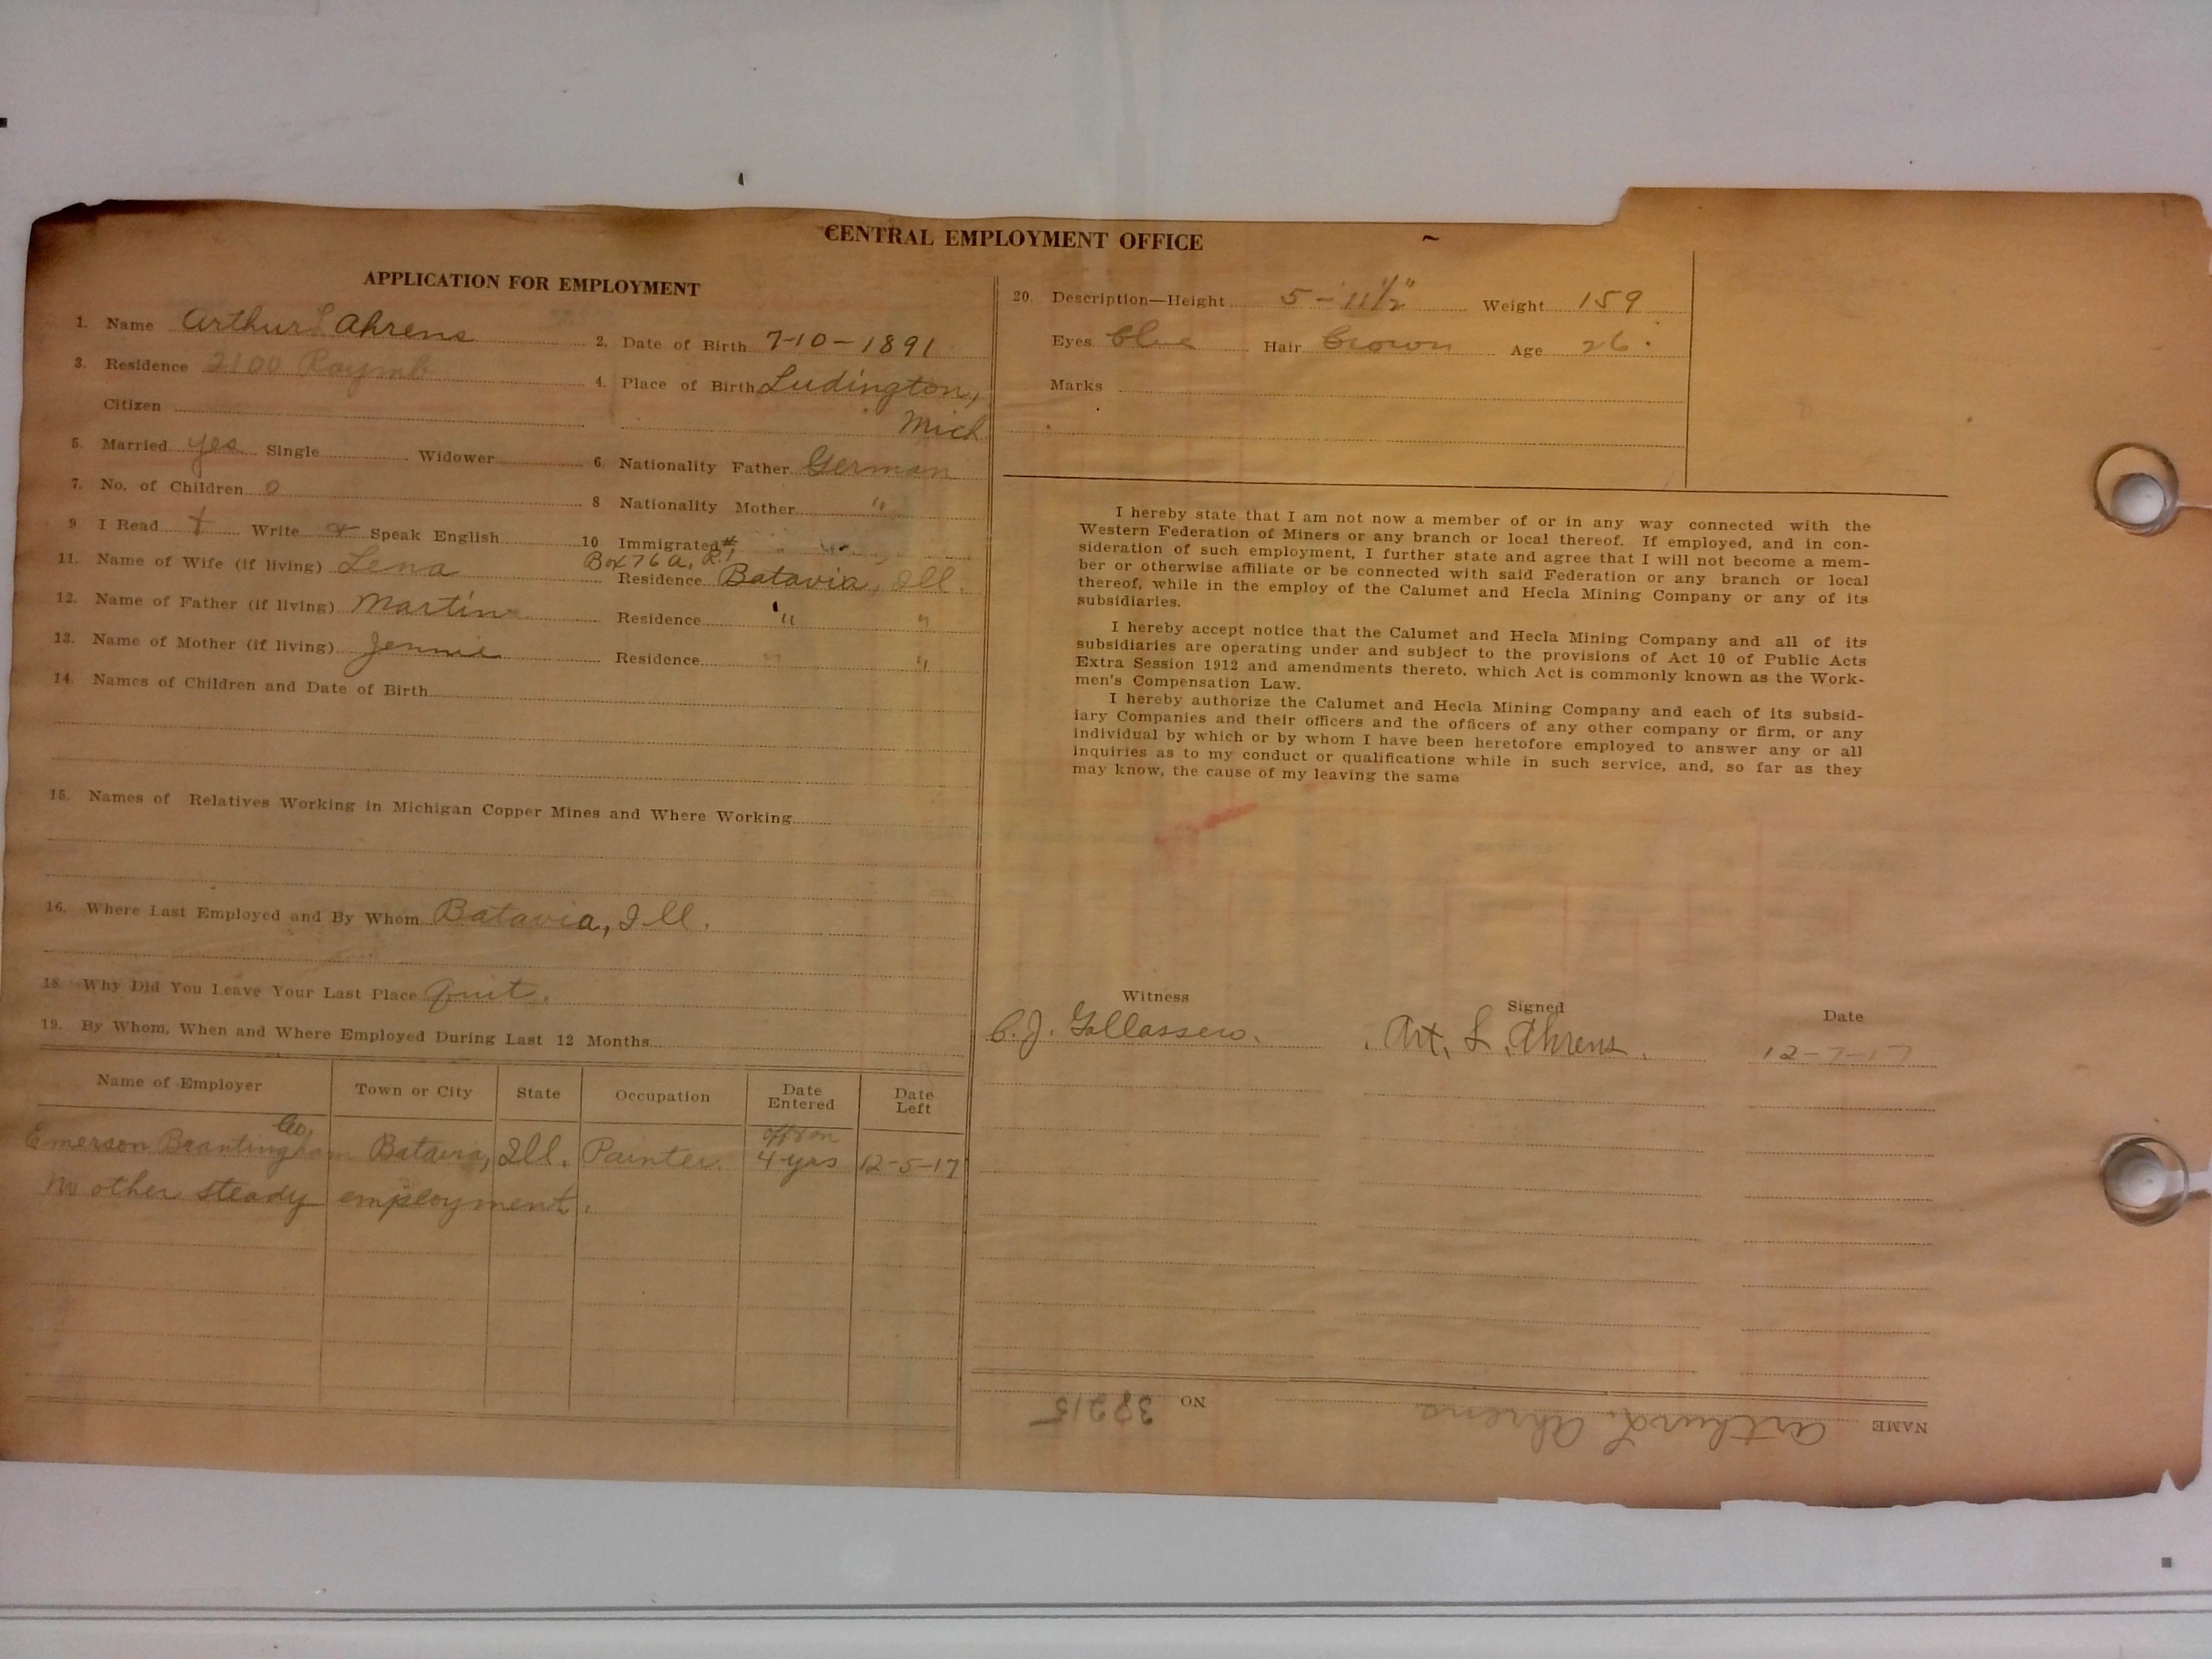 CENTRAL EMPLOYMENT OFFICE
APPLICATION FOR EMPLOYMENT
1. Name Arthur L Ahrens
2. Date of Birth 7-10-1891
3. Residence 2100 Raymb
4. Place of Birth Ludington,
Citizen
Mich
5. Married yes Single Widower
6. Nationality Father German
7. No. of Children 0
8 Nationality Mother "
9 I Read + Write + Speak English
10 Immigrated
11. Name of Wife (if living) Lena
Box 76 a, R#1
Residence Batavia, Ill.
12. Name of Father (if living) Martin
Residence " "
13. Name of Mother (if living) Jennie
Residence " "
14. Names of Children and Date of Birth
15. Names of Relatives Working in Michigan Copper Mines and Where Working
16. Where Last Employed and By Whom Batavia, Ill.
18. Why Did You Leave Your Last Place Quit.
19. By Whom, When and Where Employed During Last 12 Months
Name of Employer Town or City State Occupation Date Entered Date Left
Emerson Brantingham Co. Batavia, Ill. Painter. off & on 4 yrs 12-5-17
No other steady employment.
20. Description—Height 5 - 11 1/2" Weight 159
Eyes blue Hair brown Age 26.
Marks
I hereby state that I am not now a member of or in any way connected with the
Western Federation of Miners or any branch or local thereof. If employed, and in con-
sideration of such employment, I further state and agree that I will not become a mem-
ber or otherwise affiliate or be connected with said Federation or any branch or local
thereof, while in the employ of the Calumet and Hecla Mining Company or any of its
subsidiaries.
I hereby accept notice that the Calumet and Hecla Mining Company and all of its
subsidiaries are operating under and subject to the provisions of Act 10 of Public Acts
Extra Session 1912 and amendments thereto, which Act is commonly known as the Work-
men's Compensation Law.
I hereby authorize the Calumet and Hecla Mining Company and each of its subsid-
iary Companies and their officers and the officers of any other company or firm, or any
individual by which or by whom I have been heretofore employed to answer any or all
inquiries as to my conduct or qualifications while in such service, and, so far as they
may know, the cause of my leaving the same
Witness Signed Date
C. J. Gallassero. Art. L. Ahrens. 12-7-17
NAME Arthur L. Ahrens NO 38215